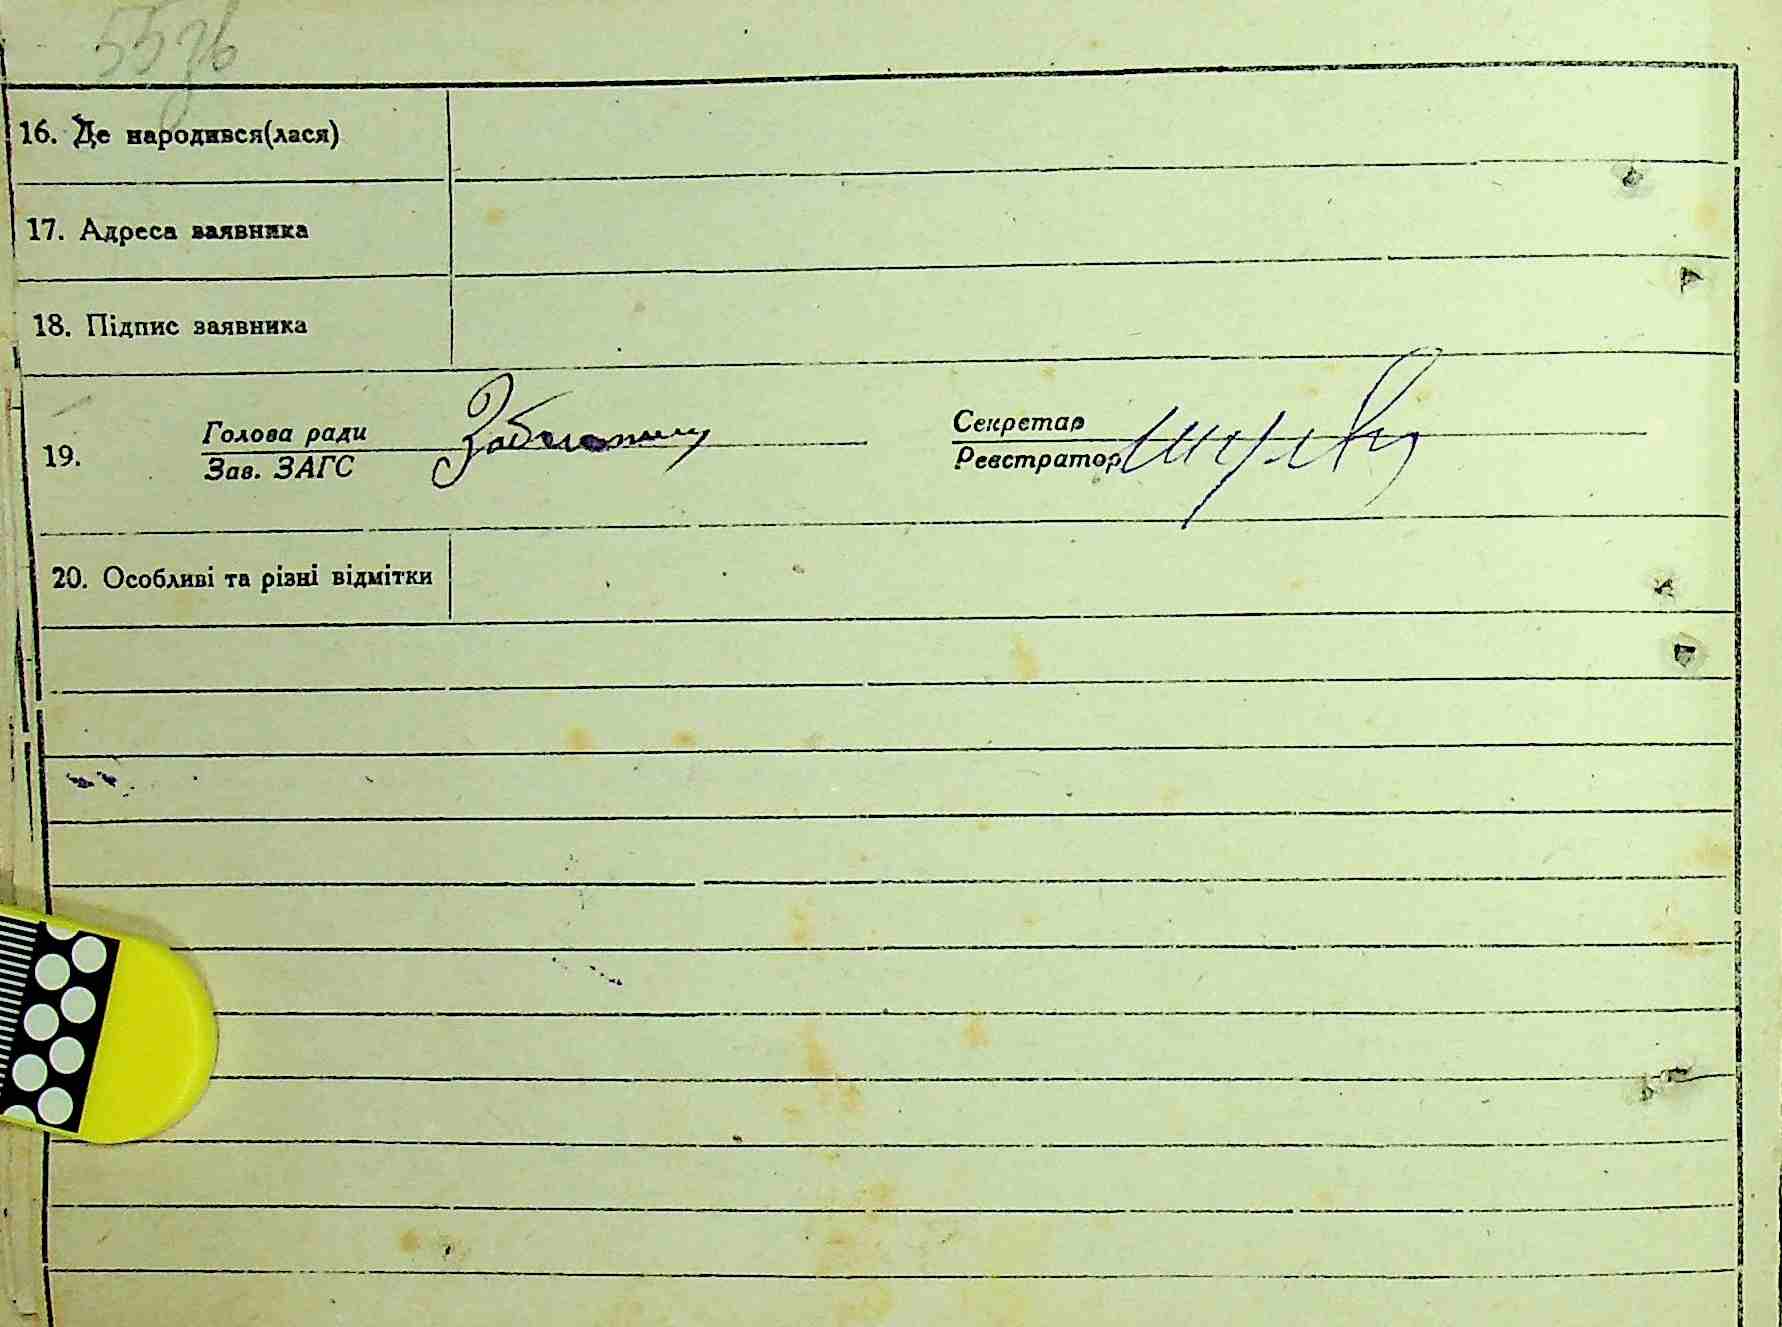 55зв
16. Де народився(лася)
17. Адреса заявника
18. Підпис заявника
19.
Голова ради
Зав. ЗАГС
Секретар
Реєстратор
20. Особливі та різні відмітки